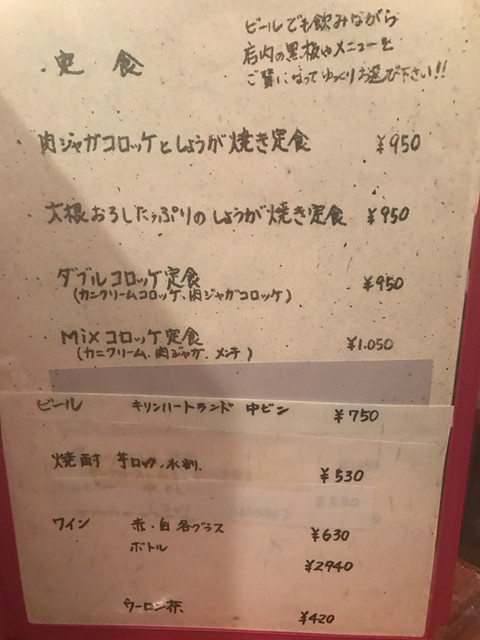 ビールでも飲みながら
店内の黒板やメニューを
ご覧になってゆっくりお選び下さい!!
・定食
肉ジャガコロッケとしょうが焼き定食 ¥950
大根おろしたっぷりのしょうが焼き定食 ¥950
ダブルコロッケ定食 ¥950
(カニクリームコロッケ、肉ジャガコロッケ)
Mixコロッケ定食 ¥1.050
(カニクリーム、肉ジャガ、メンチ)
ビール キリンハートランド 中ビン ¥750
焼酎 芋ロック、水割、 ¥530
ワイン 赤・白各グラス ¥630
ボトル ¥2940
ウーロン茶 ¥420